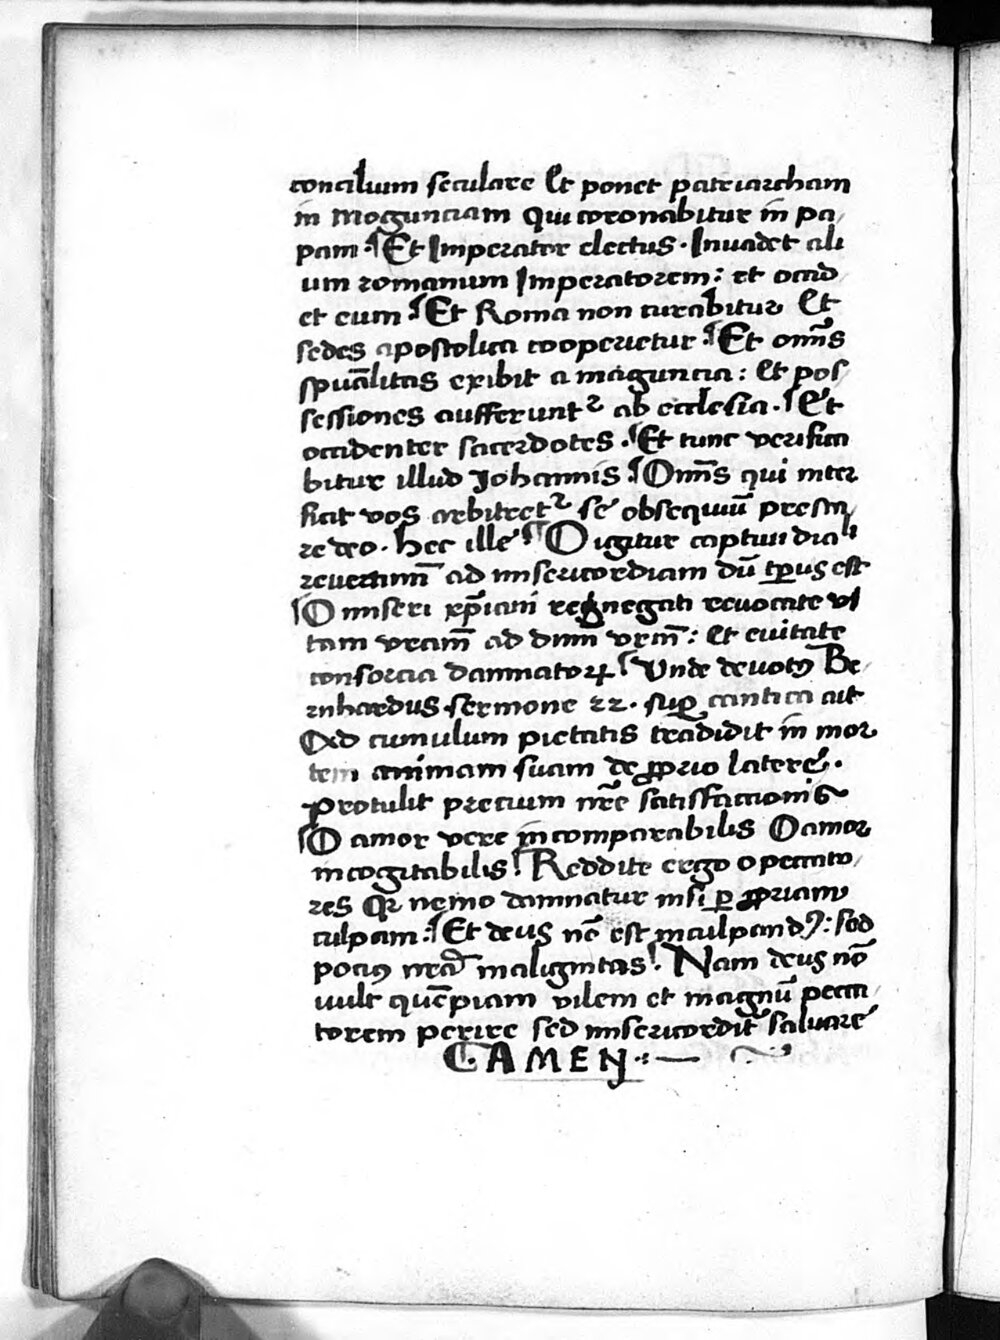 concilium seculare Et ponet patriarcham
in Moguntiam Qui coronabitur in pa,
pam · ¶ Et Imperator electus · Inuadet ali
um romanum Imperatorem : et occid
et eum ¶ Et Roma non curabitur Et
sedes apostolica cooperietur ¶ Et om̄s
spūalitas exibit a maguncia : Et pos,
sessiones aufferuntᷣ ab ecclesia · ¶ Et
occidentur sacerdotes · ¶ Et tunc verifica
bitur illud Johannis ¶ Om̄s qui inter
ficit vos arbitretᷣ se obsequiū presta,
re deo · hec ille ¶ O igitur captiui
reuertimī ad misericordiam dū tp̄us est
¶ O miseri xp̄iani regnegati reuocate vi
tam vrām ad dnm vrm̄ : et euitate
consorcia damnatoꝝ ¶ Unde deuotꝯ Be,
rnhardus sermone 22 · sup̄ cantica ait
Ad cumulum pietatis tradidit in mor
tem animam suam de ꝓprio latere ·
protulit precium nr̄e satisfactionis
¶ O amor vere incomparabilis O amor
incogitabilis ! Reddite ergo o peccato,
res Qr nemo damnatur nisi ꝑ ꝓpriam
culpam : ¶ Et deus nō est inculpandꝯ : sed
pociꝯ nrā malignitas ! Nam deus nō
uult quēpiam vilem et magnū pecca,
torem perire sed misericordit̄ saluare
¶ · AMEN · : —